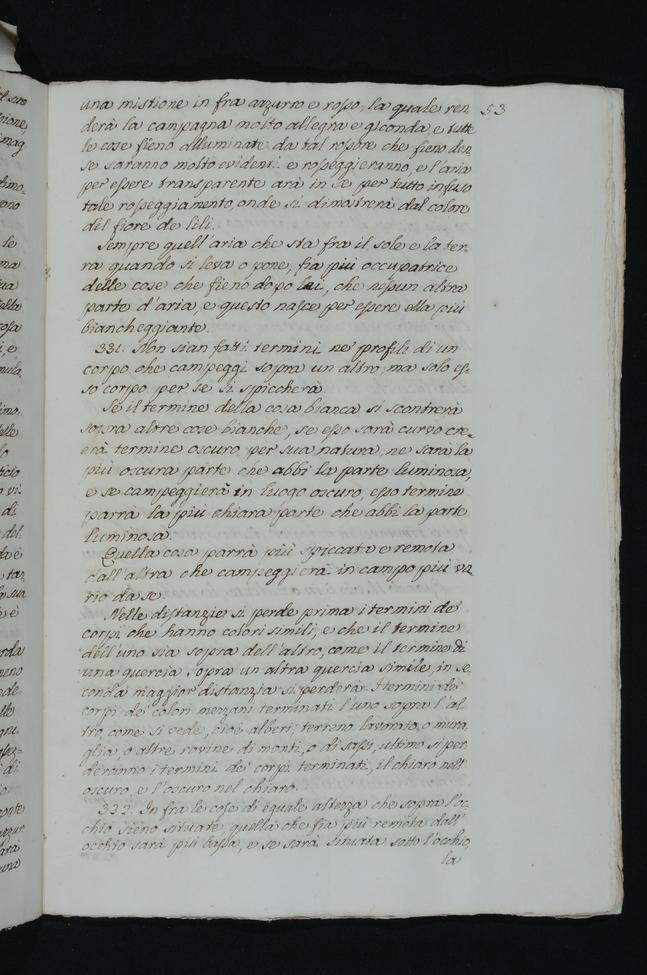 53
una mistione in fra azzurro e rosso, la quale ren
derà la campagna molto allegra e gioconda, e tutte
le cose fieno alluminate da tal rossore che fieno den.
se saranno molto evidenti e rosseggieranno, e l'aria
per essere transparente arà in se per tutto infuso
tale rosseggiamento, onde si dimostrerà dal colore
del fiore de lili.
Sempre quell'aria che sta fra il sole e la ter.
ra quando si leva o pone, fia più occupatrice
delle cose che fieno dopo lei, che nessun altra
parte d'aria, e questo nasce per essere ella più
biancheggiante.
331. Non sian fatti termini ne' profili di un
corpo, che campeggi sopra un altro, ma solo es.
so corpo per se si spiccherà.
Se il termine della cosa bianca si scontrerà
sopra altre cose bianche, se esso sarà curvo cre.
erà termine oscuro, per sua natura, ne sarà la
più oscura parte che abbi la parte luminosa,
e se campeggierà in luogo oscuro, esso termine
parrà la più chiara parte che abbi la parte
luminosa.
Quella cosa parrà più spiccata e remota
dall'altra che campeggierà in campo più va
rio da se.
Nelle distanzie si perde prima i termini de'
corpi che hanno colori simili, e che il termine
dell'uno sia sopra dell'altro, come il termine di
una quercia sopra un altra quercia simile, in se.
conda maggior distanzia si perderà i termini de'
corpi de' colori mezzani terminati l'uno sopra l'al
tro, come si vede, cioè alberi, terreno lavorato, o mura
glia, o altre rovine di monti, o di sassi, ultimo si per
deranno i termini de' corpi terminati, il chiaro nell'
oscuro, e l'oscuro nel chiaro.
332. In fra le cose di equale altezza che sopra l'oc.
chio sieno situate, quella che fia più remota dall'
occhio sarà più bassa, e se sarà situata sotto l'occhio,
la